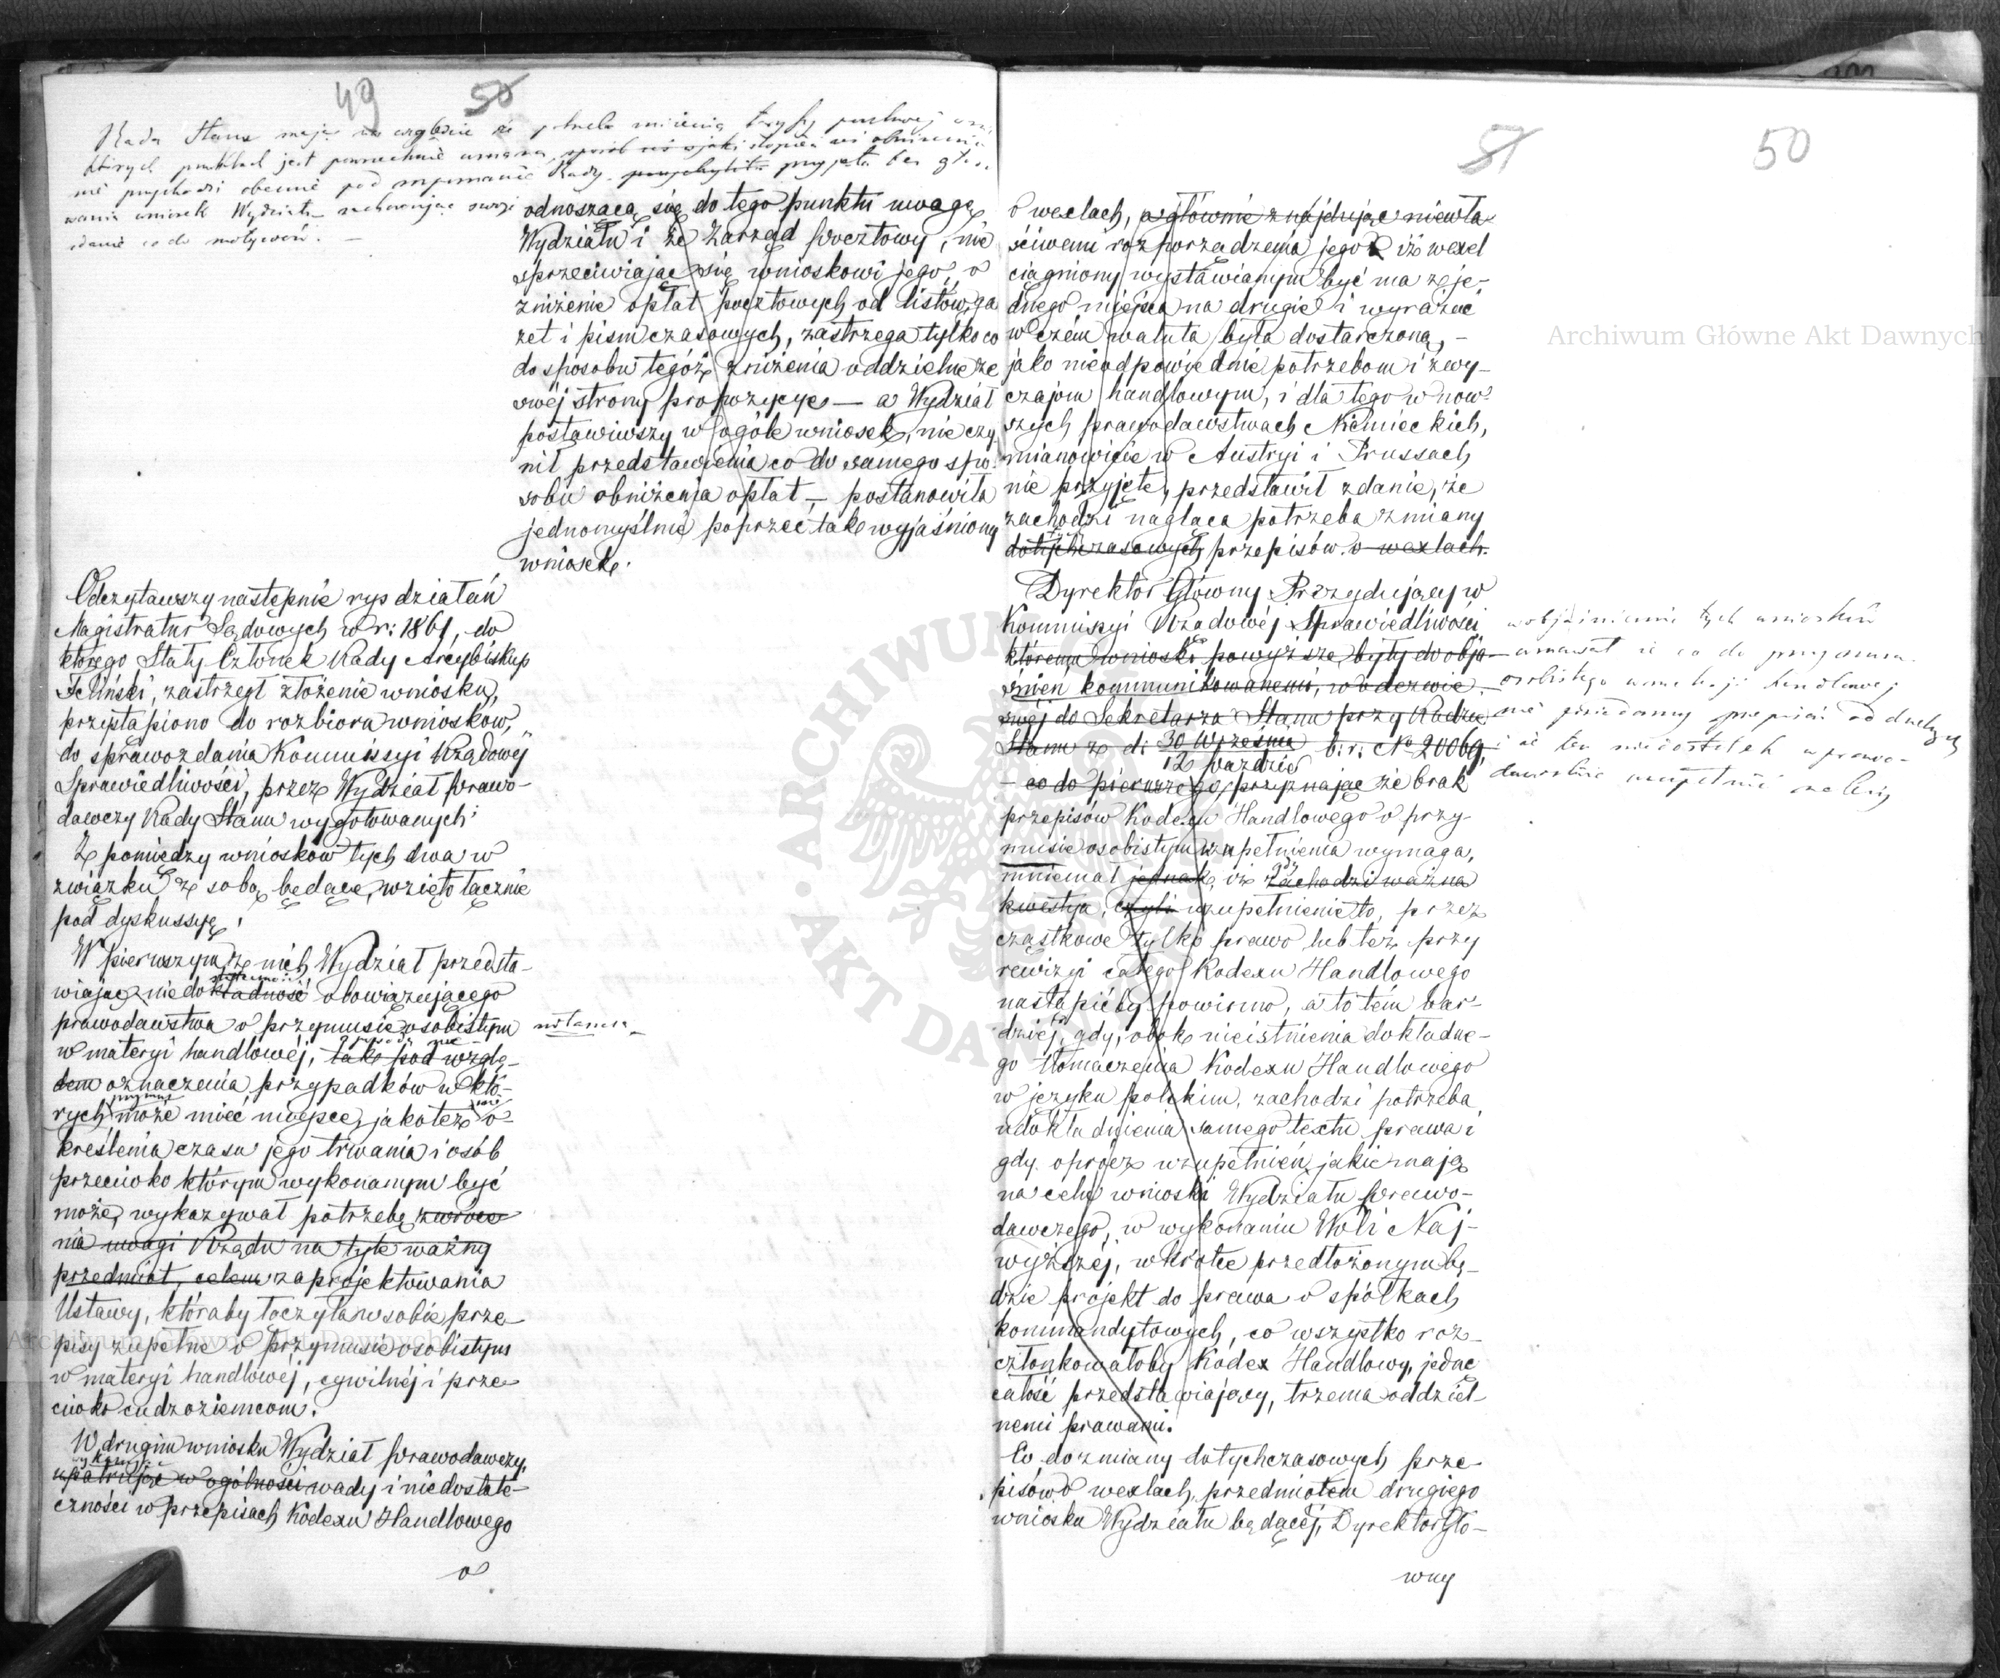 49 50
Rada Stanu mając na względzie że potrzeba zniżenia taryfy pocztowej
których jest powszechnie uznaną, sposób zaś i jaki stopień obniżenia
nie przychodzi obecnie pod rozpoznanie Rady, przychyliła przyjęła bez głoso-
wania wniosek Wydziału zachowując swoje
zdanie co do motywów. —
odnoszącą się do tego punktu uwagę
Wydziału i że Zarząd Pocztowy, nie
sprzeciwiając się wnioskowi jego, o
zniżenie opłat pocztowych od listów, ga
zet i pism czasowych, zastrzega tylko co
do sposobu tegoż zniżenia oddzielne ze
swéj strony propozycye — a Wydział
postawiwszy w ogóle wniosek, nie czy
nił przedstawienia co do samego spo-
sobu obniżenia opłat — postanowiła
jednomyślnie poprzeć tak wyjaśniony
wniosek.
Odczytawszy następnie rys działań
Magistratur Sądowych w r: 1861, do
którego Stały Członek Rady Arcybiskup
Feliński, zastrzegł złożenie wniosku,
przystąpiono do rozbioru wniosków,
do sprawozdania Kommissyi Rządowéj
Sprawiedliwości, przez Wydział Prawo-
dawczy Rady Stanu wygotowanych:
Z pomiędzy wniosków tych dwa w
związku z sobą będące, wzięto łącznie
pod dyskussyę:
W pierwszym z nich Wydział przedsta-
wiając niedokładność obowiązującego
prawodawstwa o przymusie osobistym
w materyi handlowéj, tak pod wzglę-
dem oznaczenia przypadków w któ-
rych przymus może mieć miejsce, jakoteż o-
kreślenia czasu jego trwania i osób
przeciwko którym wykonanym być
może, wykazywał potrzebę zwróce
nia uwagi Rządu na tyle ważny
przedmiot, celem zaprojektowania
Ustawy, któraby łączyła w sobie prze
pisy zupełne o przymusie osobistym
w materyi handlowéj, cywilnéj i prze
ciwko cudzoziemcom.
W drugim wniosku Wydział Prawodawczy,
wykazując
upatrując w ogólności wady i niedostate-
czności w przepisach Kodexu Handlowego
o
51 50
o wexlach, a głównie znajdując niewła-
ściwemi rozporządzenia jego iż wexel
ciągniony wystawianym być ma z je-
dnego miejsca na drugie i wyrażać
w czém waluta była dostarczoną, —
jako nieodpowiednie potrzebom i zwy-
czajom handlowym, i dla tego w now-
szych prawodawstwach Niemieckich,
mianowicie w Austryi i Prussach
nie przyjęte, przedstawił zdanie, że
zachodzi nagląca potrzeba zmiany
dotychczasowych przepisów o wexlach.
Dyrektor Główny Prezydujący w
Kommissyi Rządowéj Sprawiedliwości
któremu wnioski powyższe, były do obja-
śnień kommunikowanemi, w odezwie
swéj do Sekretarza Stanu przy Radzie
Stanu z d: 30 Września b: r: No 20069,
12 Paździe
— co do pierwszego, przyznając że brak
przepisów Kodexu Handlowego o przy-
musie osobistym uzupełnienia wymaga,
mniemał jednak, iż zachodzi ważna
kwestya, czyli uzupełnienie to, przez
cząstkowe tylko prawo lub też przy
rewizyi całego Kodexu Handlowego
nastąpićby powinno, a to tém bar-
dziéj, gdy, obok nieistnienia dokładne-
go tłomaczenia Kodexu Handlowego
w języku polskim, zachodzi potrzeba
udokładnienia samego textu prawa i
gdy oprócz uzupełnień, jakie mają
na celu wnioski Wydziału Prawo-
dawczego, w wykonaniu Woli Naj-
wyższéj, wkrótce przedłożonym bę-
dzie projekt do prawa o spółkach
kommandytowych, co wszystko roz-
członkowałoby Kodex Handlowy, jedne
całość przedstawiający, trzema oddziel-
nemi prawami.
Co do zmiany dotychczasowych prze
pisów o wexlach, przedmiotem drugiego
wniosku Wydziału będącéj, Dyrektor Głó-
wny
w objaśnieniu tych wniosków
uznawał że co do przymusu
osobistego w materyi handlowej
nie posiadamy przepisów
i że ten niedostatek w prawo-
dawstwie uzupełnić należy
Archiwum Główne Akt Dawnych
Archiwum Główne Akt Dawnych
ARCHIWUM GŁÓWNE AKT DAWNYCH